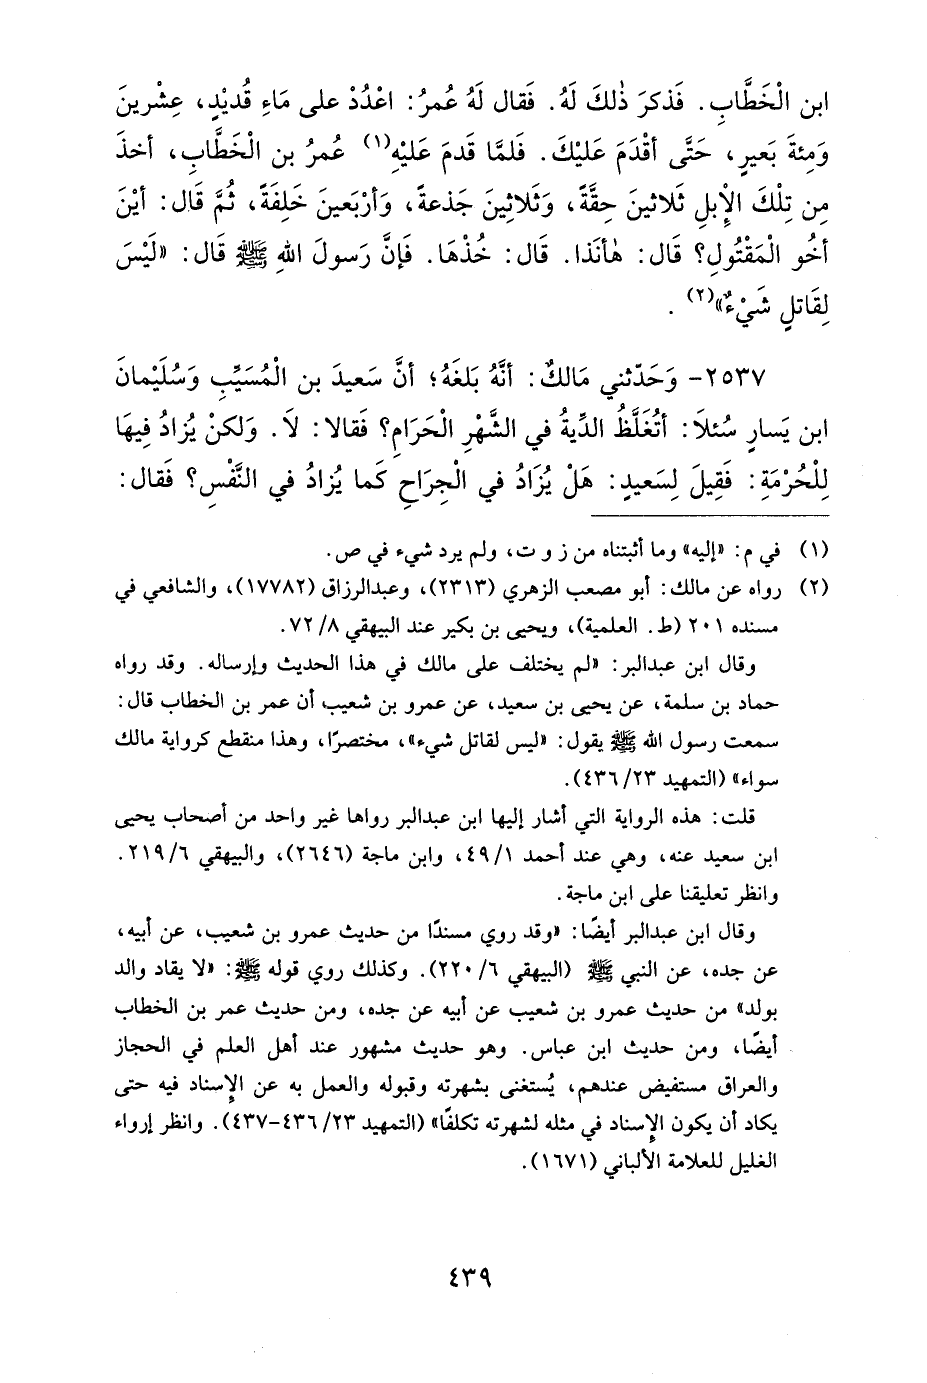 ابن الْخَطَّابِ. فَذكرَ ذٰلكَ لَهُ. فَقال لَهُ عُمرُ: اعْدُدْ على مَاءِ قُديْدٍ، عِشْرينَ
وَمِئةَ بَعيرٍ، حَتَّى أقْدَمَ عَليْكَ. فَلمَّا قَدمَ عَليْهِ(١) عُمرُ بن الْخَطَّابِ، أخذَ
مِن تِلْكَ الْإبلِ ثَلاثينَ حِقَّةً، وَثَلاثِينَ جَذعةً، وَأرْبَعينَ خَلِفَةً، ثُمَّ قَال: أيْنَ
أخُو الْمَقْتُولِ؟ قَال: هٰأنَذا. قَال: خُذْهَا. فَإنَّ رَسولَ اللهِ ﷺ قَال: «لَيْسَ
لِقَاتلٍ شَيْءٌ»(٢).
٢٥٣٧- وَحَدّثني مَالكٌ: أنَّهُ بَلغَهُ؛ أنَّ سَعيدَ بن الْمُسَيِّبِ وَسُلَيْمانَ
ابن يَسارٍ سُئلاَ: أتُغَلَّظُ الدِّيةُ في الشَّهْرِ الْحَرَامِ؟ فَقالا: لاَ. وَلكنْ يُزادُ فِيهَا
لِلْحُرْمَةِ: فَقِيلَ لِسَعيدٍ: هَلْ يُزَادُ في الْجِرَاحِ كَما يُزادُ في النَّفْسِ؟ فَقال:
(١) في م: «إليه» وما أثبتناه من ز و ت، ولم يرد شيء في ص.
(٢) رواه عن مالك: أبو مصعب الزهري (٢٣١٣)، وعبدالرزاق (١٧٧٨٢)، والشافعي في
مسنده ٢٠١ (ط. العلمية)، ويحيى بن بكير عند البيهقي ٨/ ٧٢.
وقال ابن عبدالبر: «لم يختلف على مالك في هذا الحديث وإرساله. وقد رواه
حماد بن سلمة، عن يحيى بن سعيد، عن عمرو بن شعيب أن عمر بن الخطاب قال:
سمعت رسول الله ﷺ يقول: «ليس لقاتل شيء»، مختصرًا، وهذا منقطع كرواية مالك
سواء» (التمهيد ٢٣/ ٤٣٦).
قلت: هذه الرواية التي أشار إليها ابن عبدالبر رواها غير واحد من أصحاب يحيى
ابن سعيد عنه، وهي عند أحمد ١/ ٤٩، وابن ماجة (٢٦٤٦)، والبيهقي ٦/ ٢١٩.
وانظر تعليقنا على ابن ماجة.
وقال ابن عبدالبر أيضًا: «وقد روي مسندًا من حديث عمرو بن شعيب، عن أبيه،
عن جده، عن النبي ﷺ (البيهقي ٦/ ٢٢٠). وكذلك روي قوله ﷺ: «لا يقاد والد
بولد» من حديث عمرو بن شعيب عن أبيه عن جده، ومن حديث عمر بن الخطاب
أيضًا، ومن حديث ابن عباس. وهو حديث مشهور عند أهل العلم في الحجاز
والعراق مستفيض عندهم، يُستغنى بشهرته وقبوله والعمل به عن الإسناد فيه حتى
يكاد أن يكون الإسناد في مثله لشهرته تكلفًا» (التمهيد ٢٣/ ٤٣٦-٤٣٧). وانظر إرواء
الغليل للعلامة الألباني (١٦٧١).
٤٣٩